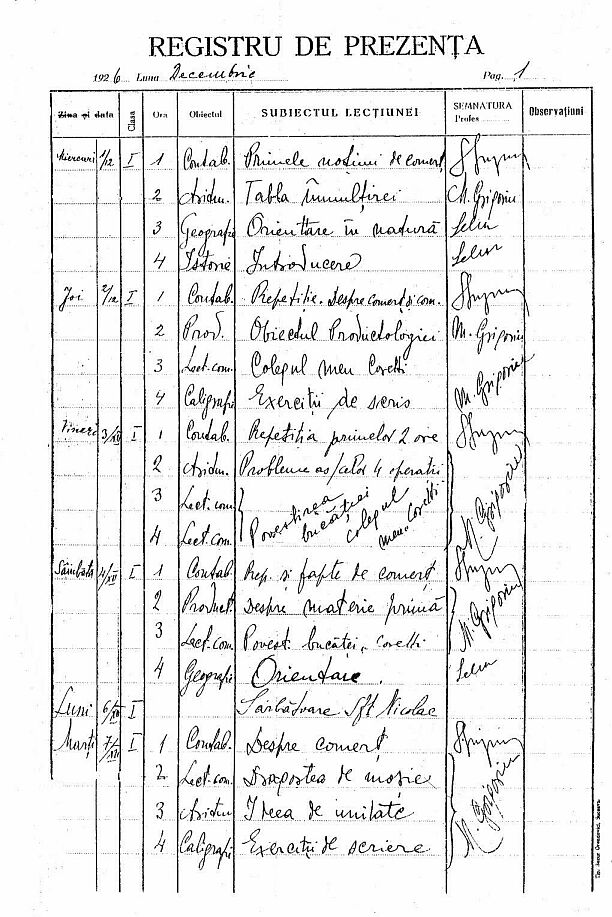 REGISTRU DE PREZENȚA
1926 Luna Decembrie Pag. 1
Ziua și data Clasa Ora Obiectul SUBIECTUL LECȚIUNEI SEMNATURA Profes Observațiuni
Miercuri 1/12 I 1 Contab. Primele noțiuni de comerț
2 Aritm. Tabla înmulțirei M. Grigoriu
3 Geografie Orientare în natură
4 Istorie Introducere
Joi 2/12 I 1 Contab. Repetiție. Despre comerț și com.
2 Prod. Obiectul Productologiei M. Grigoriu
3 Lect. com. Colegul meu Coretti
4 Caligrafie Exerciții de scris M. Grigoriu
Vineri 3/XII I 1 Contab. Repetiția primelor 2 ore
2 Aritm. Probleme as/celor 4 operații
3 Lect. com. Povestirea bucăței colegul meu Coretti M. Grigoriu
4 Lect. com.
Sâmbăta 4/XII I 1 Contab. Rep. și fapte de comerț
2 Product. Despre materie primă M. Grigoriu
3 Lect. com. Povest. bucăței, coretti
4 Geografie Orientare.
Luni 6/XII I Sărbătoare Sft Nicolae
Marți 7/XII I 1 Contab. Despre comerț
2 Lect. com. Dragostea de moșie M. Grigoriu
3 Aritm Ideea de unitate
4 Caligrafie Exerciții de scriere